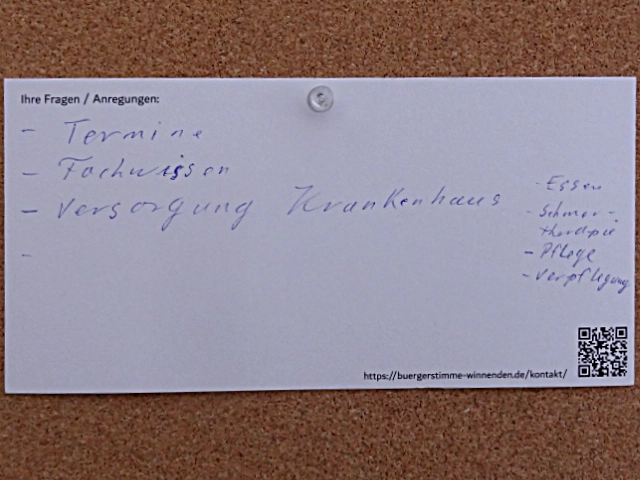 Ihre Fragen / Anregungen:
- Termine
- Fachwissen
- Versorgung Krankenhaus
-
- Essen
- Schmerz-
therapie
- Pflege
- Verpflegung
https://buergerstimme-winnenden.de/kontakt/